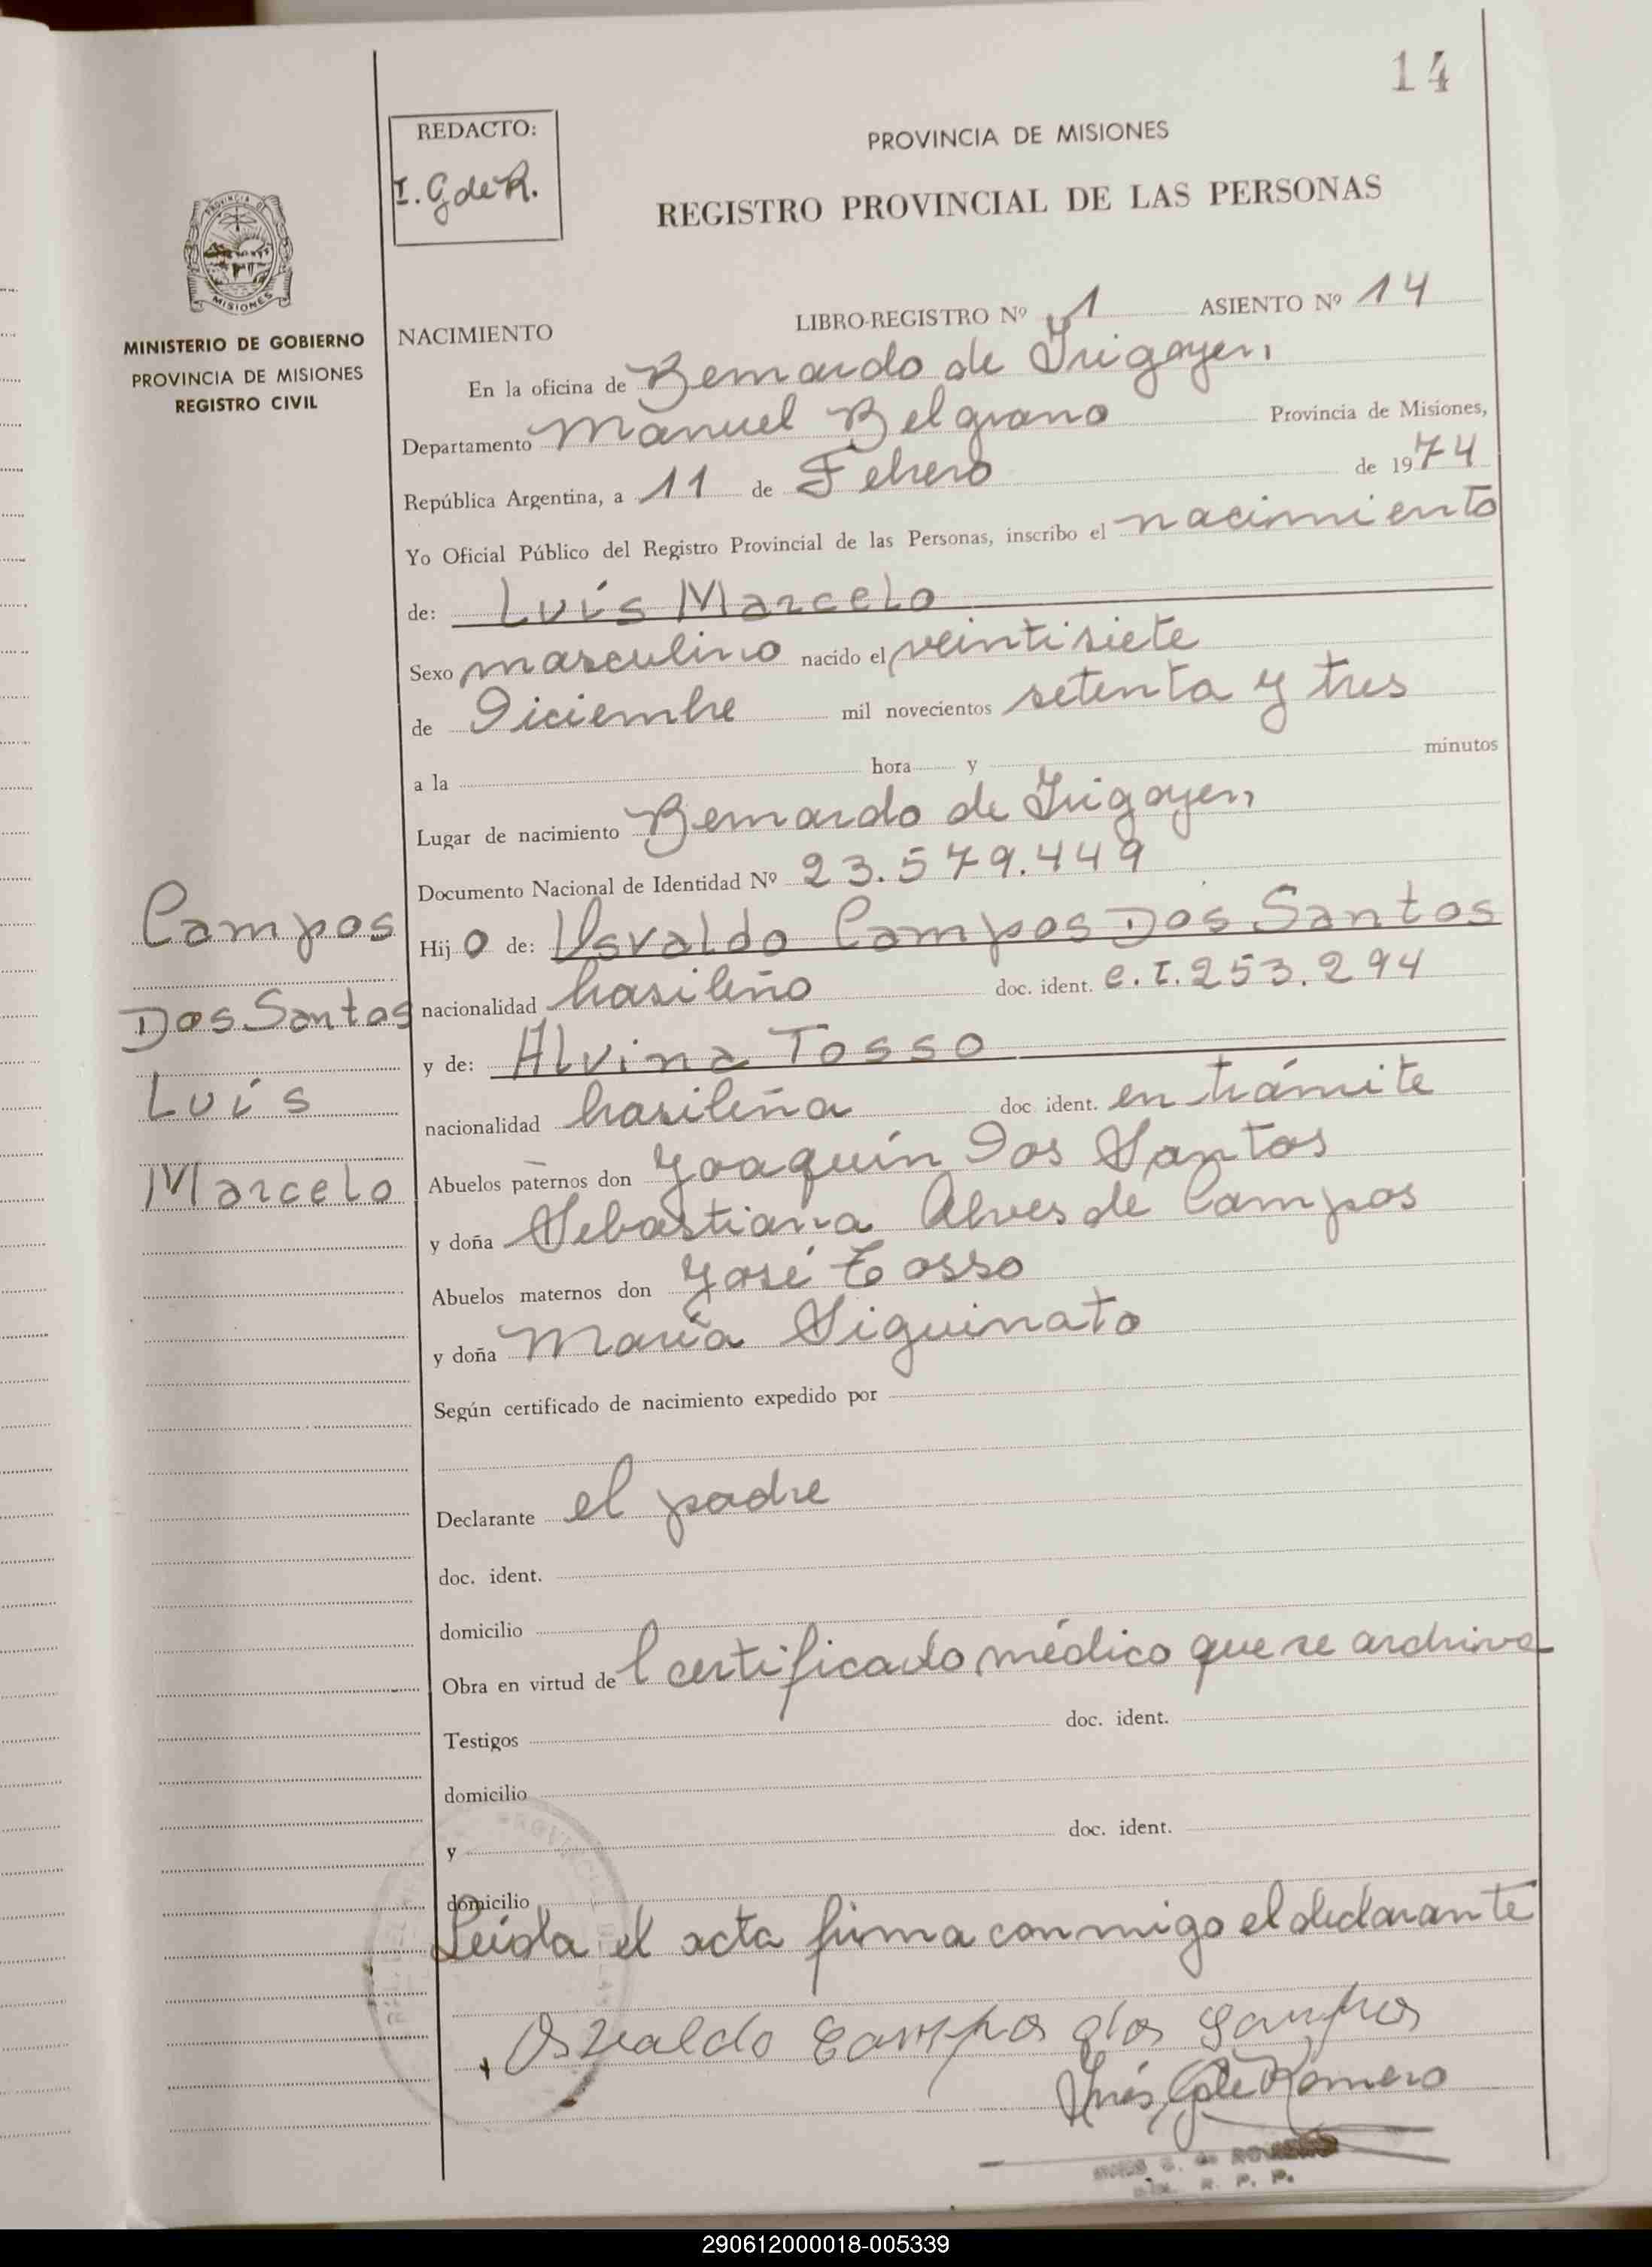 14
REDACTO:
I. G de R.
PROVINCIA DE MISIONES
REGISTRO PROVINCIAL DE LAS PERSONAS
MISIONES
MINISTERIO DE GOBIERNO
PROVINCIA DE MISIONES
REGISTRO CIVIL
NACIMIENTO LIBRO-REGISTRO Nº 1 ASIENTO Nº 14
En la oficina de Bernardo de Irigoyen,
Departamento Manuel Belgrano Provincia de Misiones,
República Argentina, a 11 de Febrero de 1974
Yo Oficial Público del Registro Provincial de las Personas, inscribo el nacimiento
de: Luís Marcelo
Sexo masculino nacido el veintisiete
de Diciembre mil novecientos setenta y tres
a la hora y minutos
Lugar de nacimiento Bernardo de Irigoyen,
Documento Nacional de Identidad Nº 23.579.449
Campos
Hijo de: Osvaldo Campos Dos Santos
nacionalidad brasileño doc. ident. C.I. 253.294
Dos Santos
y de: Alvina Tosso
Luís
nacionalidad brasileña doc ident. en trámite
Marcelo
Abuelos paternos don Joaquín Dos Santos
y doña Sebastiana Alves de Campos
Abuelos maternos don José Tosso
y doña María Siguinato
Según certificado de nacimiento expedido por
Declarante el padre
doc. ident.
domicilio
Obra en virtud del certificado médico que se archiva
Testigos doc. ident.
domicilio
y doc. ident.
domicilio
Leída el acta firma conmigo el declarante
Osvaldo Campos dos Santos
Inés G de Romero
G. de ROMERO
R. P. P.
290612000018-005339